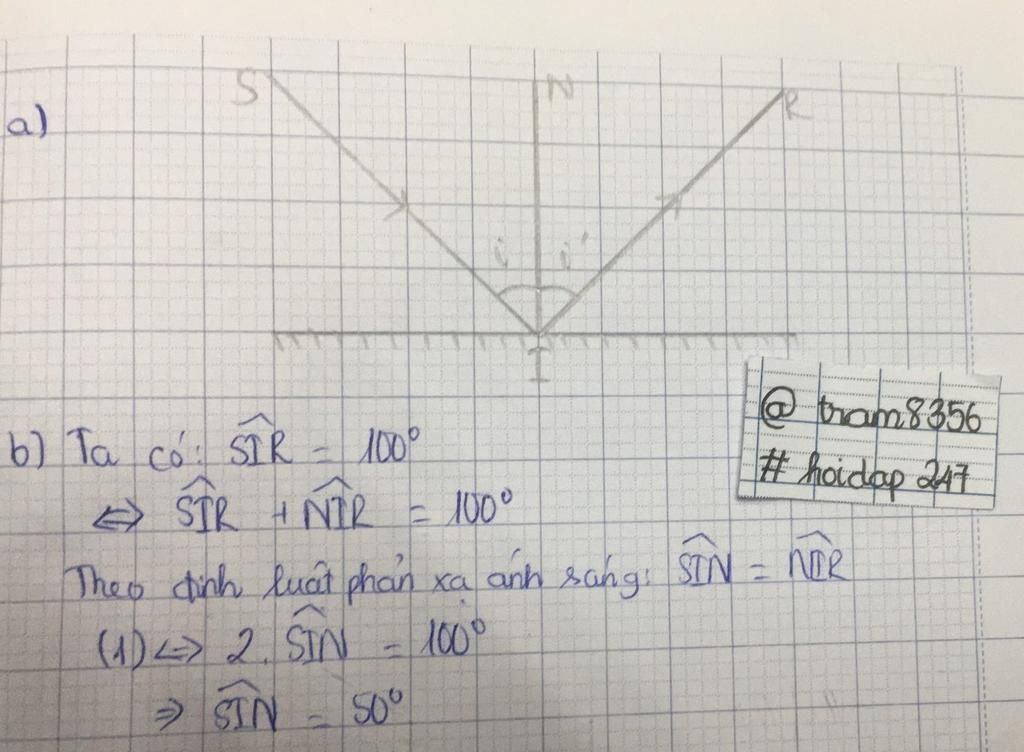 a)
S N R
i i'
I
@ tram8356
# hoidap 247
b) Ta có: $\widehat{SIR}$ = 100°
⇔ $\widehat{SIR}$ + $\widehat{NIR}$ = 100°
Theo định luật phản xạ ánh sáng: $\widehat{SIN}$ = $\widehat{NIR}$
(1) ⇔ 2. $\widehat{SIN}$ = 100°
⇒ $\widehat{SIN}$ = 50°